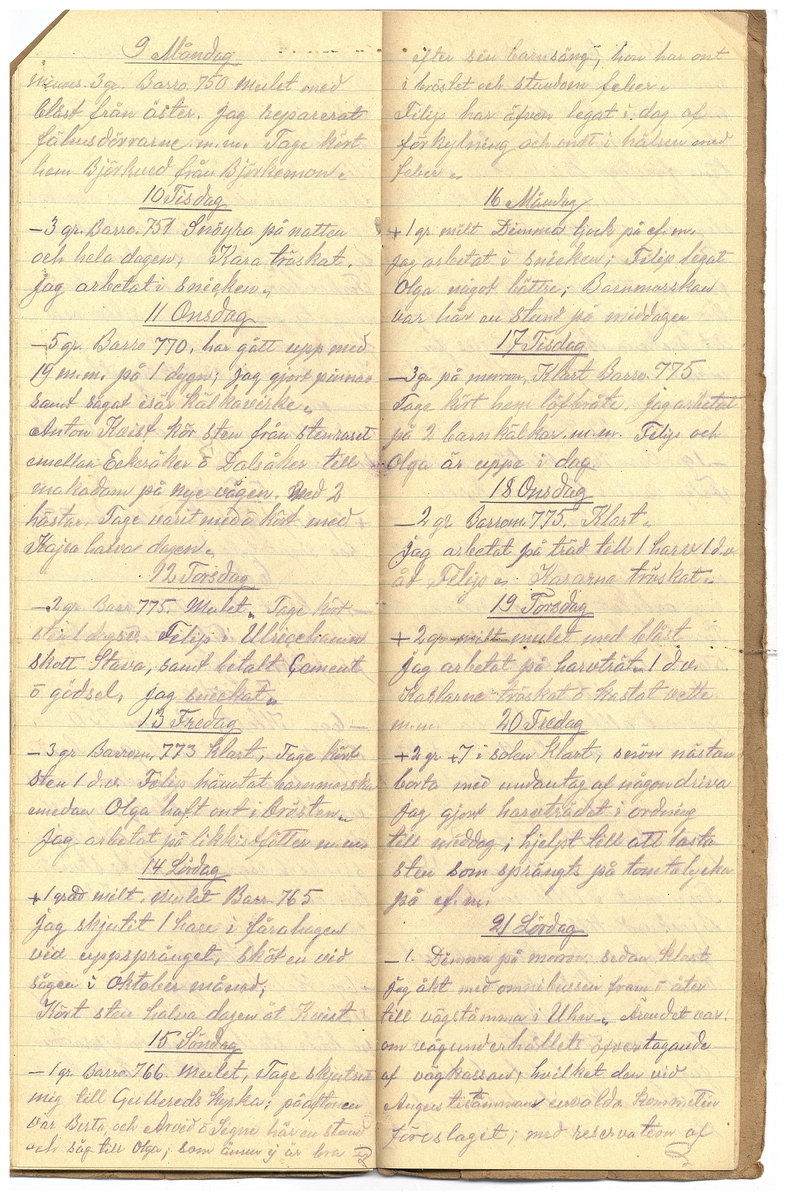 9 Måndag
minus 3 gr. Barro. 750 Mulet med
blåst från öster. Jag reparerat
fähusdörrarne m.m. Tage kört
hem Björkved från Björkemon.
10 Tisdag
-3 gr. Barro. 751 Snöyra på natten
och hela dagen; Kara tröskat.
Jag arbetat i snicken.
11 Onsdag
-5 gr. Barro 770, har gått upp med
19 m.m. på 1 dygn; Jag gjort pinnar
samt sågat isär kälkavirke.
Anton Kvist kör sten från stenraset
emellan Ecksåker o Dalsåker till
makadam på nye vägen. Med 2
hästar. Tage varit med o kört med
Kajsa halva dagen.
12 Torsdag
-2 gr. Barr 775. Mulet. Tage kört
sten 1 dagsv. Filip i Ulricehamn
skott Stava, samt betalt Cament
o gödsel, jag snickat.
13 Fredag
-3 gr Barrom. 773 Klart, Tage kört
sten 1 d.v. Filip hämtat barnmorska
emedan Olga haft ont i brösten.
Jag arbetat på likkistfötter m.m.
14 Lördag
+1 grad milt, mulet Barr. 765
Jag skjutit 1 hare i fårahagen
vid uppsprånget, sköt en vid
sågen i Oktober månad;
Kört sten halva dagen åt Kvist
15 Söndag
-1 gr Barro 766 Mulet, Tage skjutsat
mig till Gullereds kyrka; på aftonen
var Berta och Arvid o Signe här en stund
och såg till Olga; som ännu ej är bra
efter sin barnsäng, hon har ont
i bröstet och stundom feber.
Filip har äfven legat i dag af
förkylning och ondt i halsen med
feber.
16 Måndag
+1 gr milt Dimma tjock på ef.m.
Jag arbetat i snicken; Filip legat
Olga något bättre; Barnmorskan
var här en stund på middagen
17 Tisdag
-3 gr. på morron, Klart Barro. 775
Tage kört hem löfkråte. Jag arbetat
på 2 barnkälkar m.m. Filip och
Olga är uppe i dag
18 Onsdag
-2 gr. Barrom. 775. Klart.
jag arbetat på träd till 1 harv 1 d.v
åt Filip. Kararna tröskat.
19 Torsdag
+2 gr milt mulet med blåst
Jag arbetat på harvträt. 1 d.v.
Karlarne tröskat o kastat
m.m 20 Fredag
+2 gr +7 i solen Klart, snön nästan
borta med undantag af någon driva
Jag gjort harvträdet i ordning
till middag; hjelpt till att lasta
sten som sprängts på tomtalyckan
på ef.m.
21 Lördag
-1. Dimma på morron. sedan klart
Jag åkt med omnibussen fram o åter
till vägstämma i Uhn. Ärendet var
om vägunderhållets öfvertagande
af vägkassan; hvilket den vid
Augusti stämman utvalda Kommitén
föreslaget; med reservation af